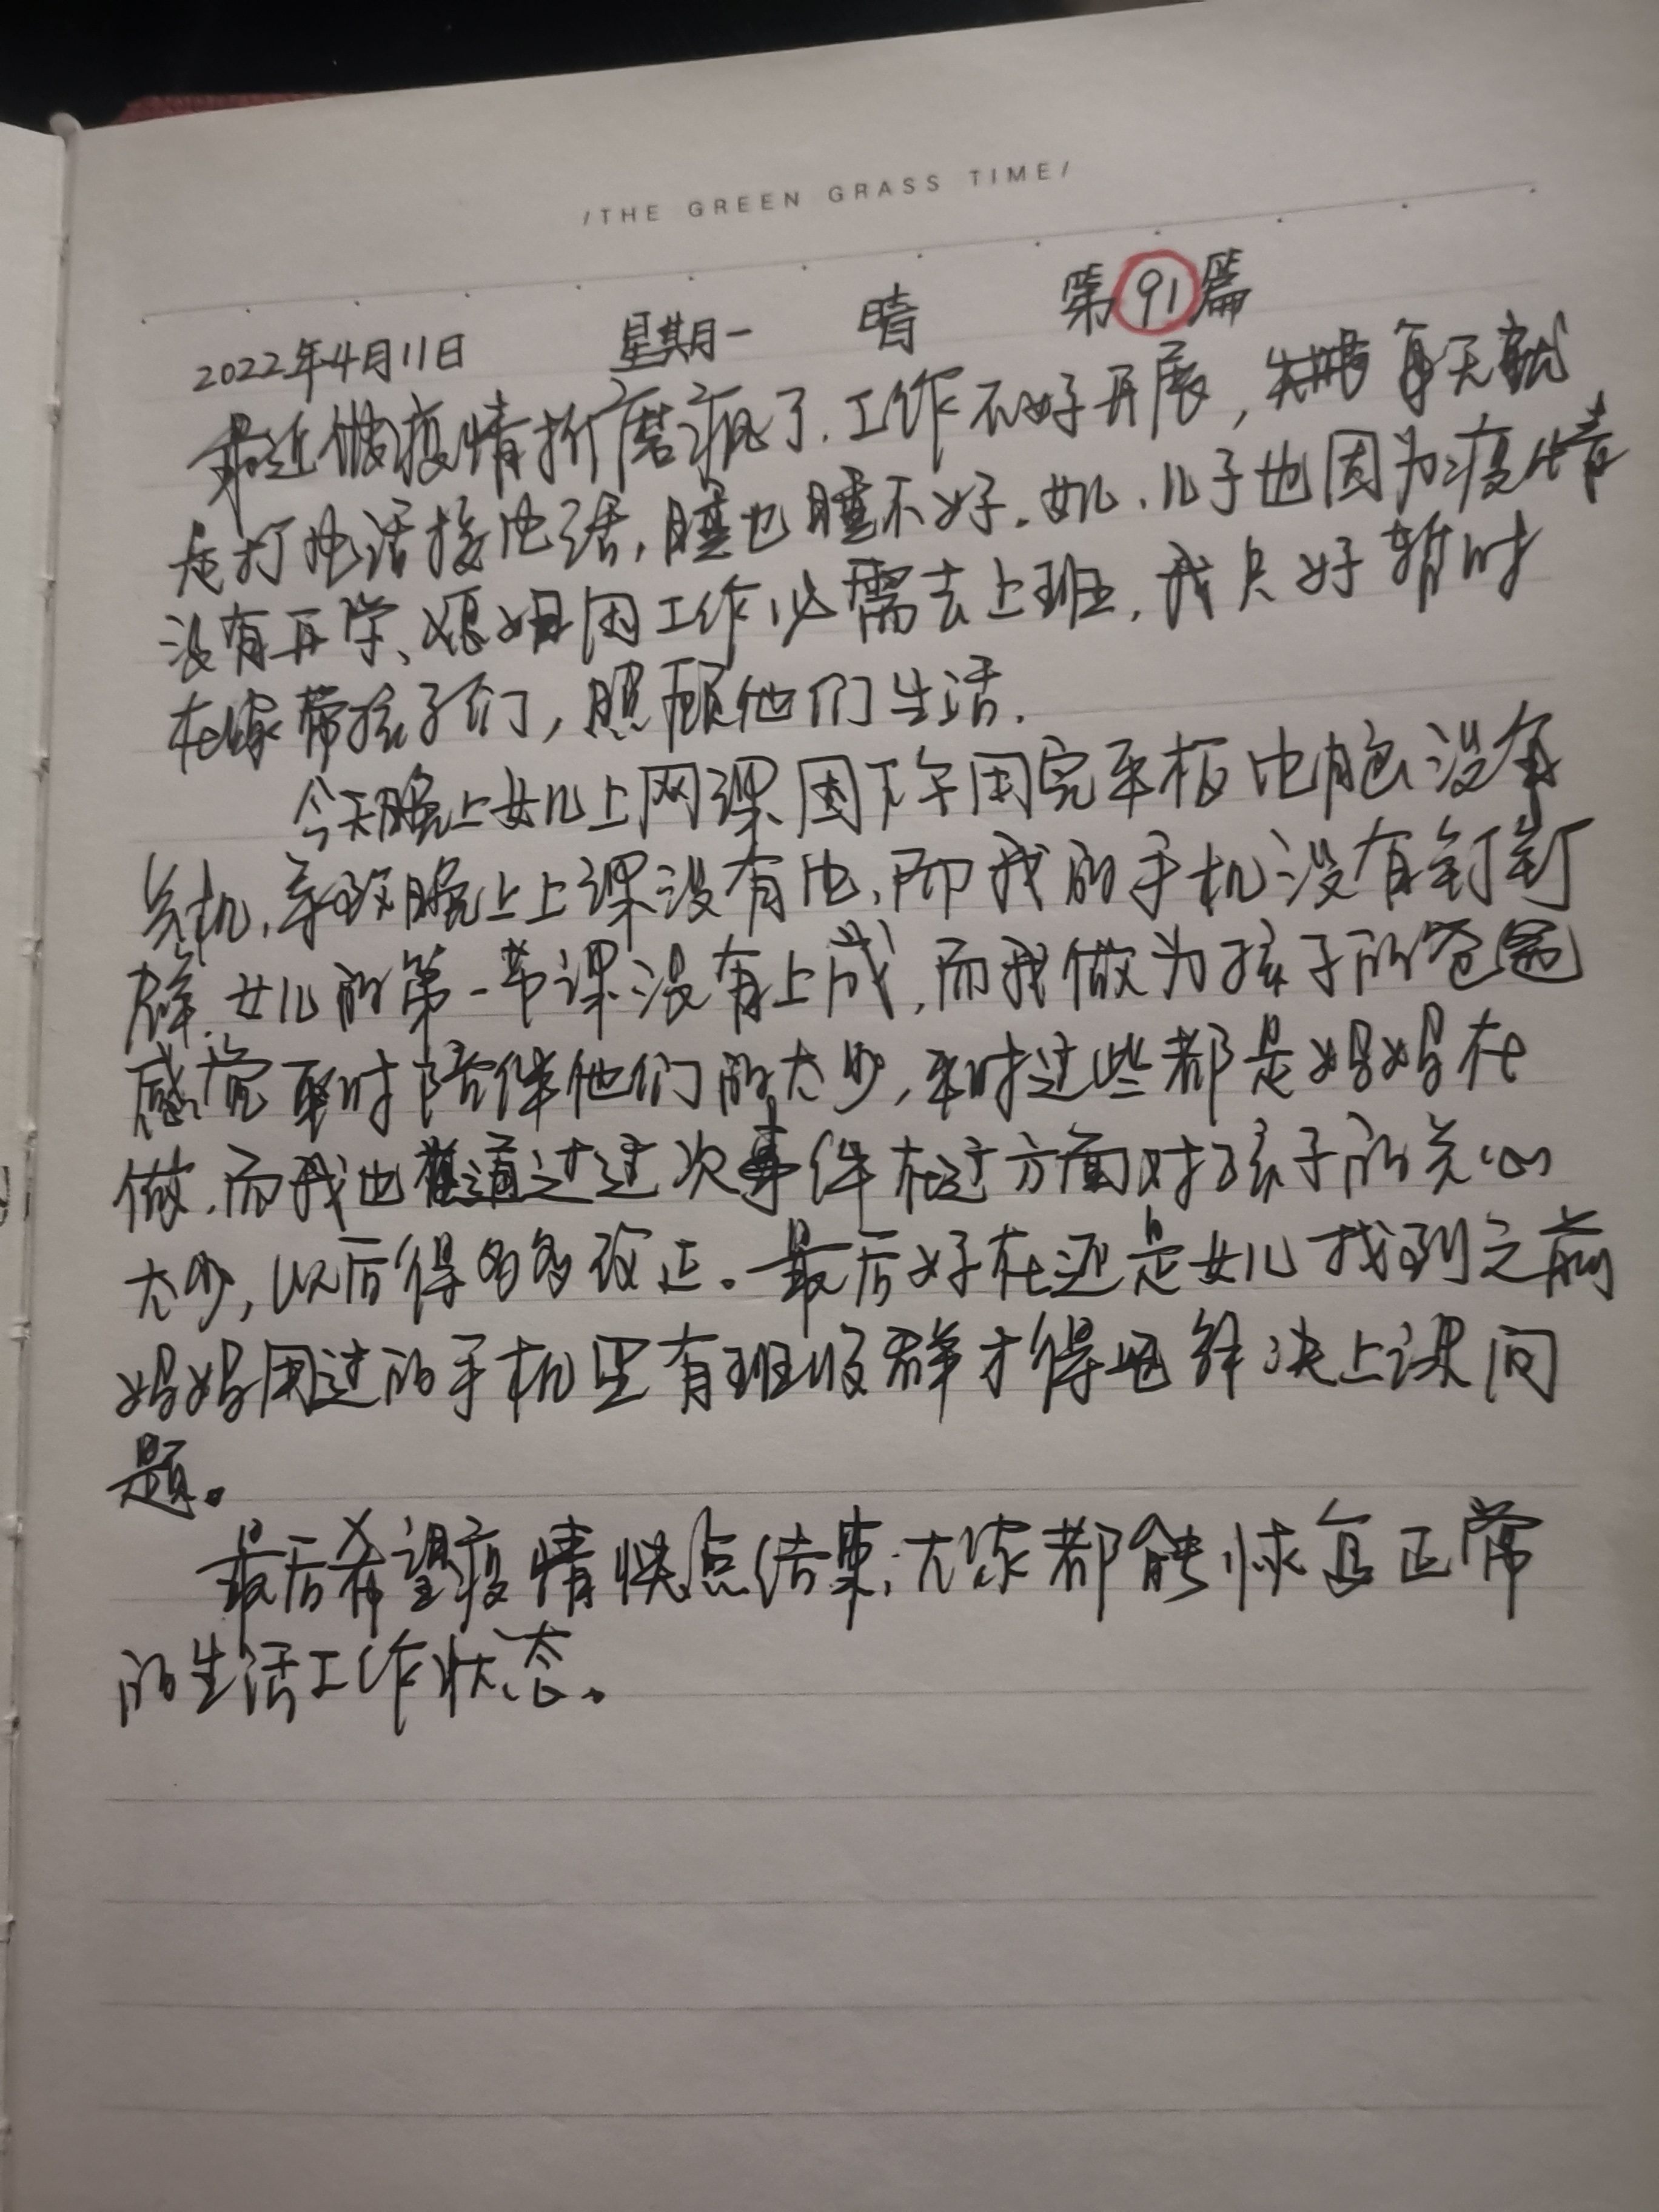 /THE GREEN GRASS TIME/
2022年4月11日 星期一 晴 第91篇
最近做疫情折磨疯了.工作不好开展,每天就
是打电话接电话,睡也睡不好.女儿、儿子也因为疫情
没有开学、媳妇因工作必需去上班,我只好暂时
在家带孩子们,照顾他们生活.
今天晚上女儿上网课因下午用完平板电脑没有
关机,导致晚上上课没有电,而我的手机没有钉钉
群.女儿的第一节课没有上成,而我做为孩子的爸爸
感觉平时陪伴他们的太少,平时这些都是妈妈在
做.而我也通过这次事件在这方面对孩子的关心
太少,以后得多多改正。最后好在还是女儿找到之前
妈妈用过的手机里有班级群才得已解决上课问
题。
最后希望疫情快点结束;大家都能恢复正常
的生活工作状态。